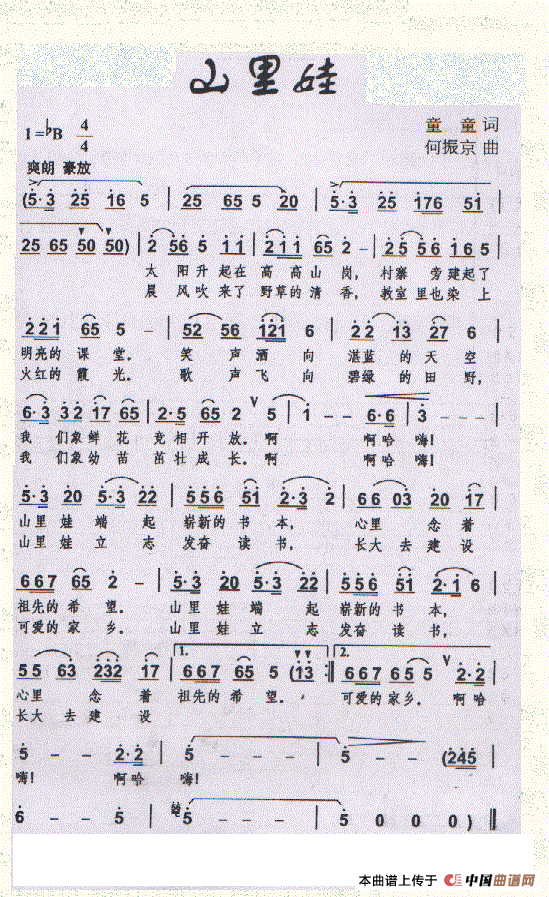 山里娃
1=♭B 4/4
童 童 词
何振京 曲
爽朗 豪放
(5·3 25 16 5 | 25 65 5 20 | 5·3 25 176 51 |
25 65 50 50) | 2 56 5 11 | 211 65 2 - | 25 56 165 |
太 阳 升 起在 高 高山 岗, 村寨 旁建起了
晨 风吹 来了 野草的 清 香, 教室 里也染 上
221 65 5 - | 52 56 121 6 | 22 13 27 6 |
明亮的 课 堂。 笑 声 洒 向 湛蓝 的 天 空
火红的 霞 光。 歌 声 飞 向 碧绿 的 田 野,
6·3 32 17 65 | 2·5 65 2 5 | 1 - - 6·6 | 3 - - - |
我 们象 鲜 花 竞 相 开 放。啊 啊哈 嗨!
我 们象 幼 苗 茁 壮 成 长。啊 啊哈 嗨!
5·3 20 5·3 22 | 556 51 2·3 2 | 66 03 20 17 |
山里 娃 端 起 崭新的 书 本, 心里 念 着
山里 娃 立 志 发奋 读 书, 长大 去 建 设
667 65 2 - | 5·3 20 5·3 22 | 556 51 2·1 6 |
祖先的 希 望。 山里 娃 端 起 崭新的 书 本,
可爱的 家 乡。 山里 娃 立 志 发奋 读 书,
55 63 232 17 | 1. 667 65 5 (13 :‖ 2. 667 65 5 2·2 |
心里 念 着 祖先的 希 望。 可爱的 家乡。 啊哈
长大 去 建 设
5 - - 2·2 | 5 - - - | 5 - - (245
嗨! 啊哈 嗨!
6 - - 5 | 5 - - - | 5 0 0 0) ‖
本曲谱上传于 中国曲谱网